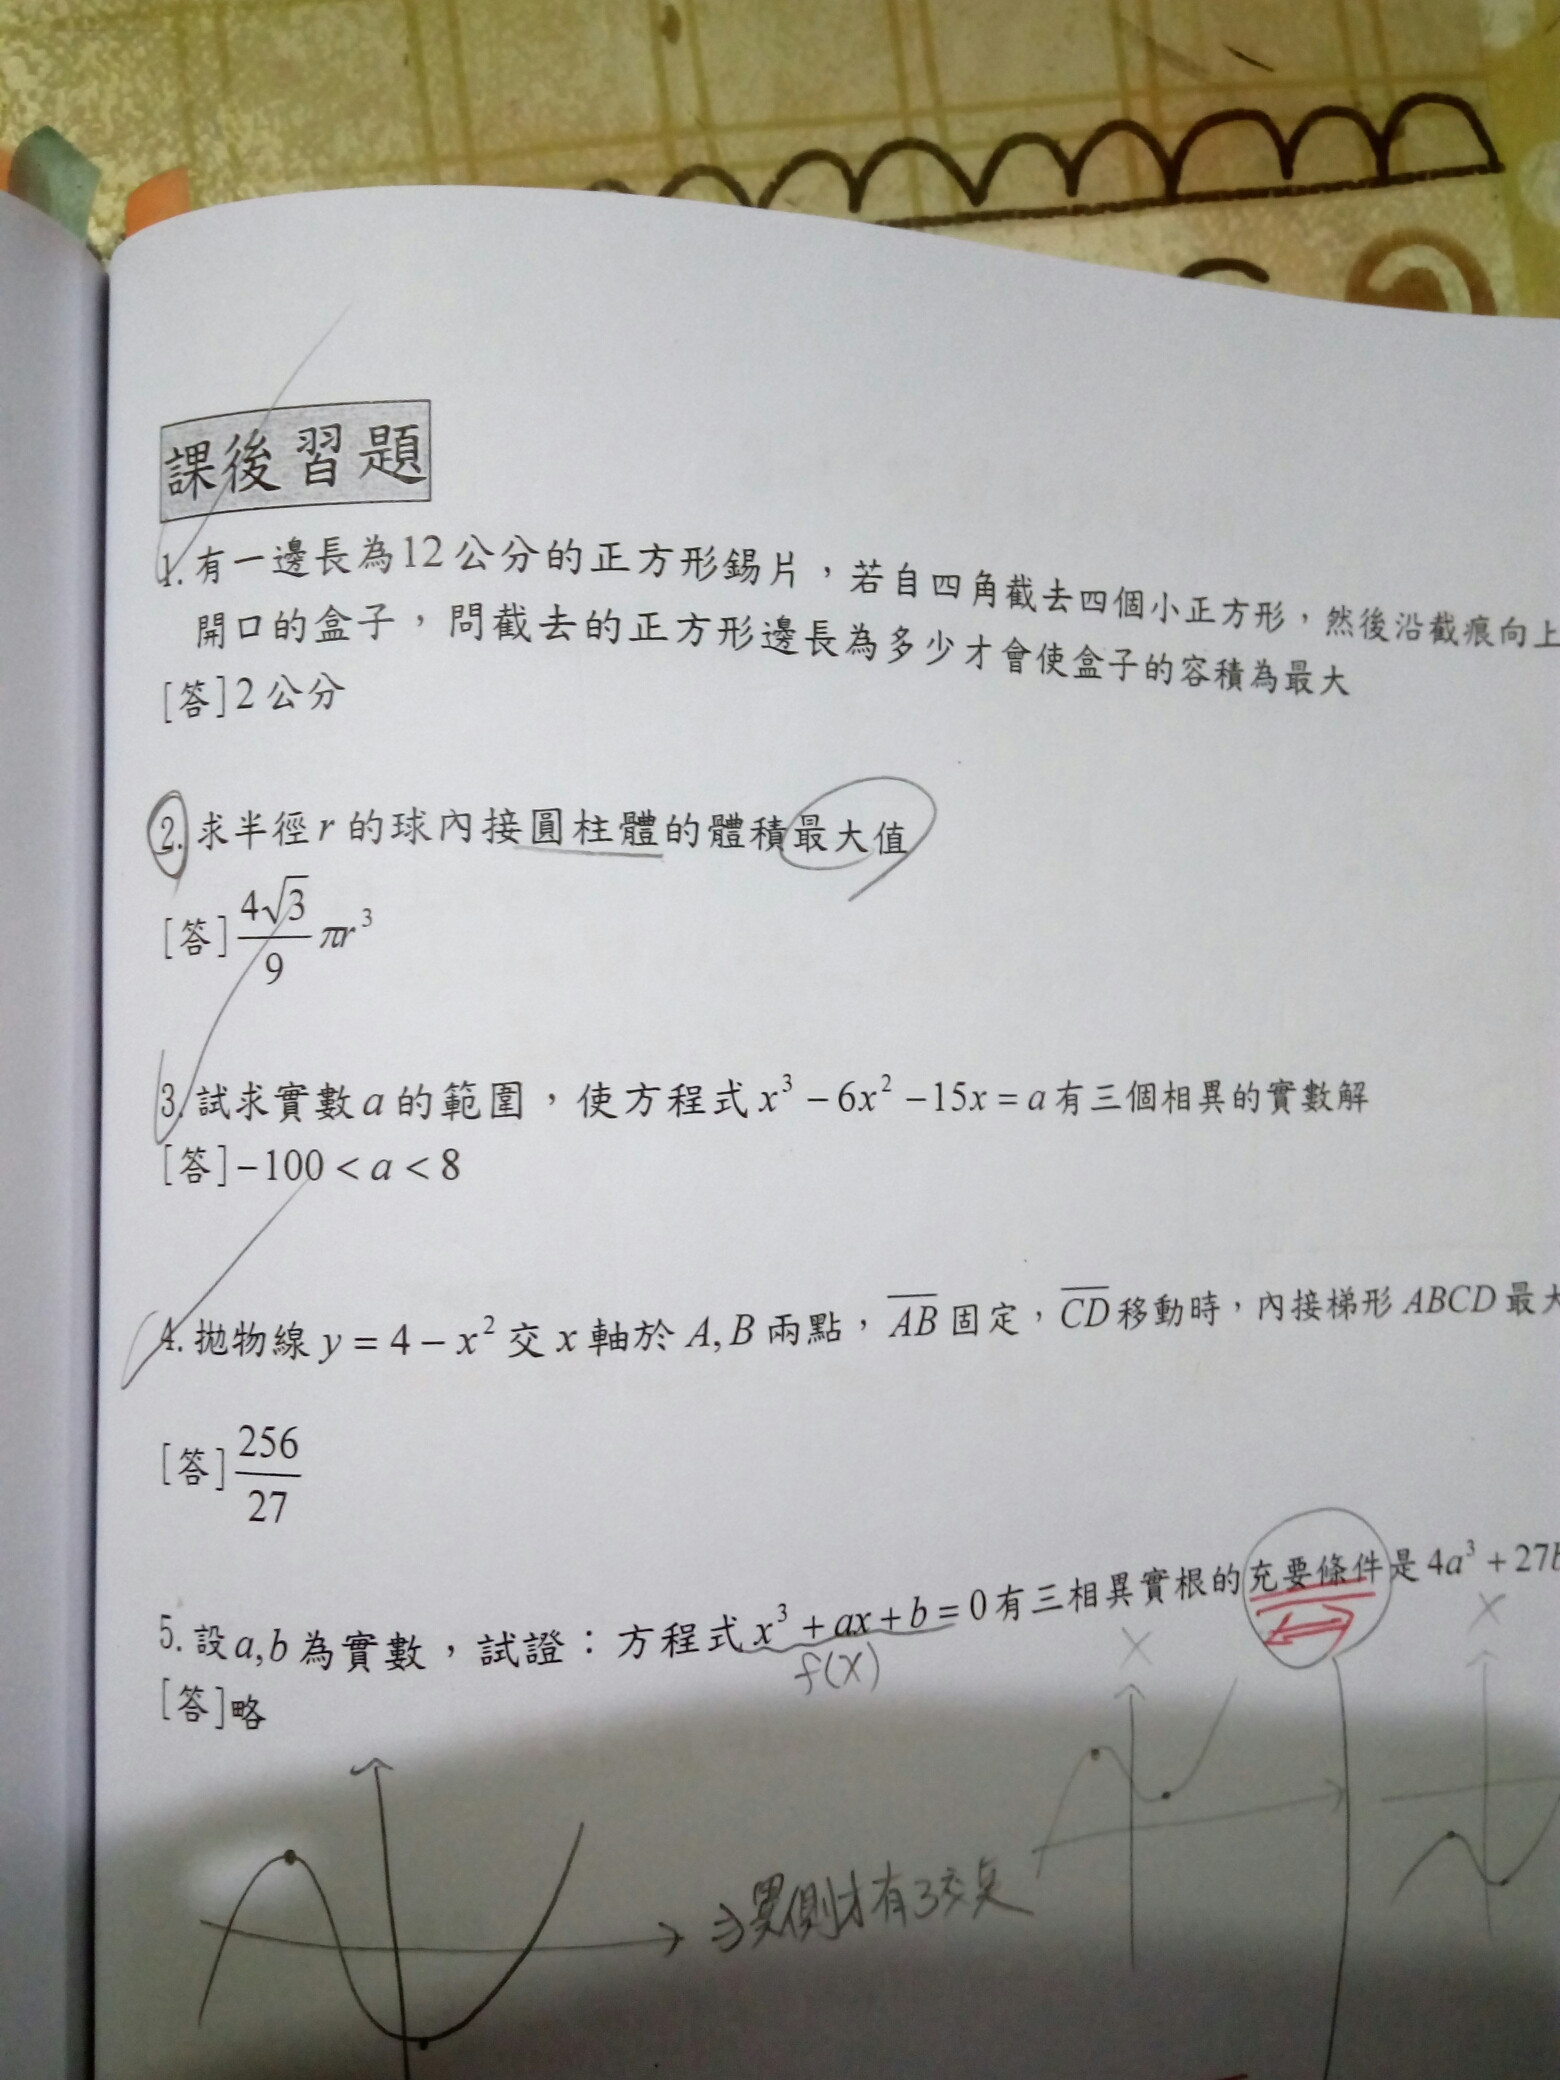 課後習題
1. 有一邊長為12公分的正方形錫片，若自四角截去四個小正方形，然後沿截痕向上
開口的盒子，問截去的正方形邊長為多少才會使盒子的容積為最大
[答]2公分
2. 求半徑 r 的球內接圓柱體的體積最大值
[答] 4√3/9 πr³
3. 試求實數a的範圍，使方程式 x³ − 6x² − 15x = a 有三個相異的實數解
[答] −100 < a < 8
4. 拋物線 y = 4 − x² 交 x 軸於 A, B 兩點，AB 固定，CD 移動時，內接梯形 ABCD 最大
[答] 256/27
5. 設a,b為實數，試證：方程式 x³ + ax + b = 0 有三相異實根的充要條件是 4a³ + 27b
f(x)
[答]略
⇒異側才有3交點